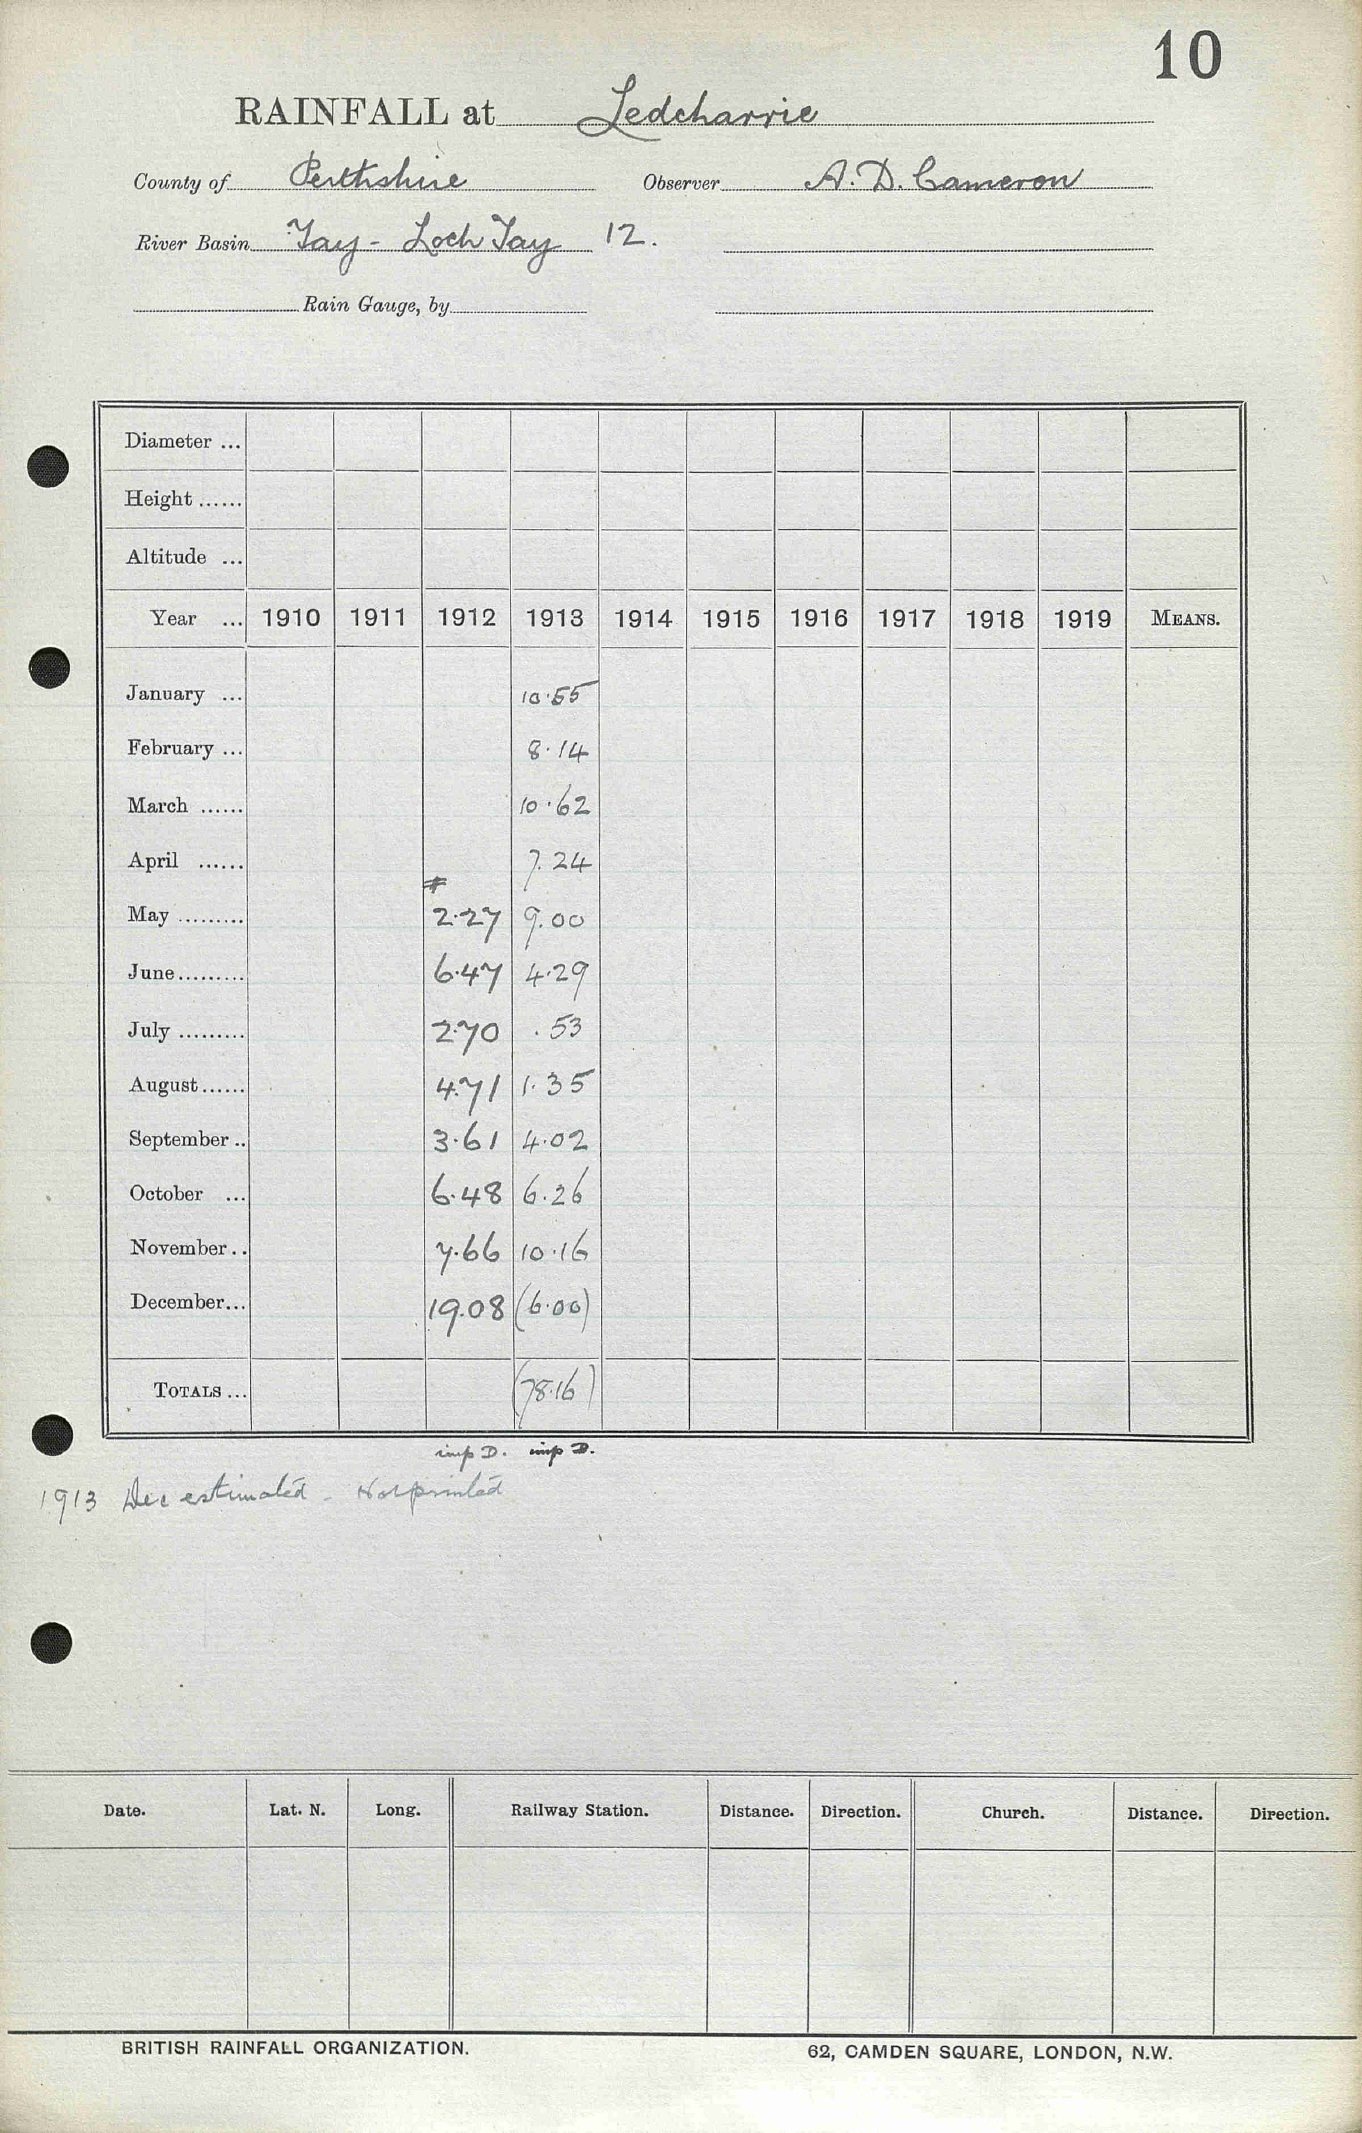 10
RAINFALL at Ledcharrie
County of Perthshire Observer A. D. Cameron
River Basin Tay - Loch Tay 12.
Rain Gauge, by
Diameter ...
Height ......
Altitude ...
Year ... 1910 1911 1912 1913 1914 1915 1916 1917 1918 1919 MEANS.
January ... 10.55
February ... 8.14
March ...... 10.62
April ...... 7.24
#
May ......... 2.27 9.00
June......... 6.47 4.29
July ......... 2.70 .53
August...... 4.71 1.35
September .. 3.61 4.02
October ... 6.48 6.26
November .. 7.66 10.16
December... 19.08 (6.00)
TOTALS ... (78.16)
imp D. imp D.
1913 Dec estimated - Not printed
Date. Lat. N. Long. Railway Station. Distance. Direction. Church. Distance. Direction.
BRITISH RAINFALL ORGANIZATION. 62, CAMDEN SQUARE, LONDON, N.W.